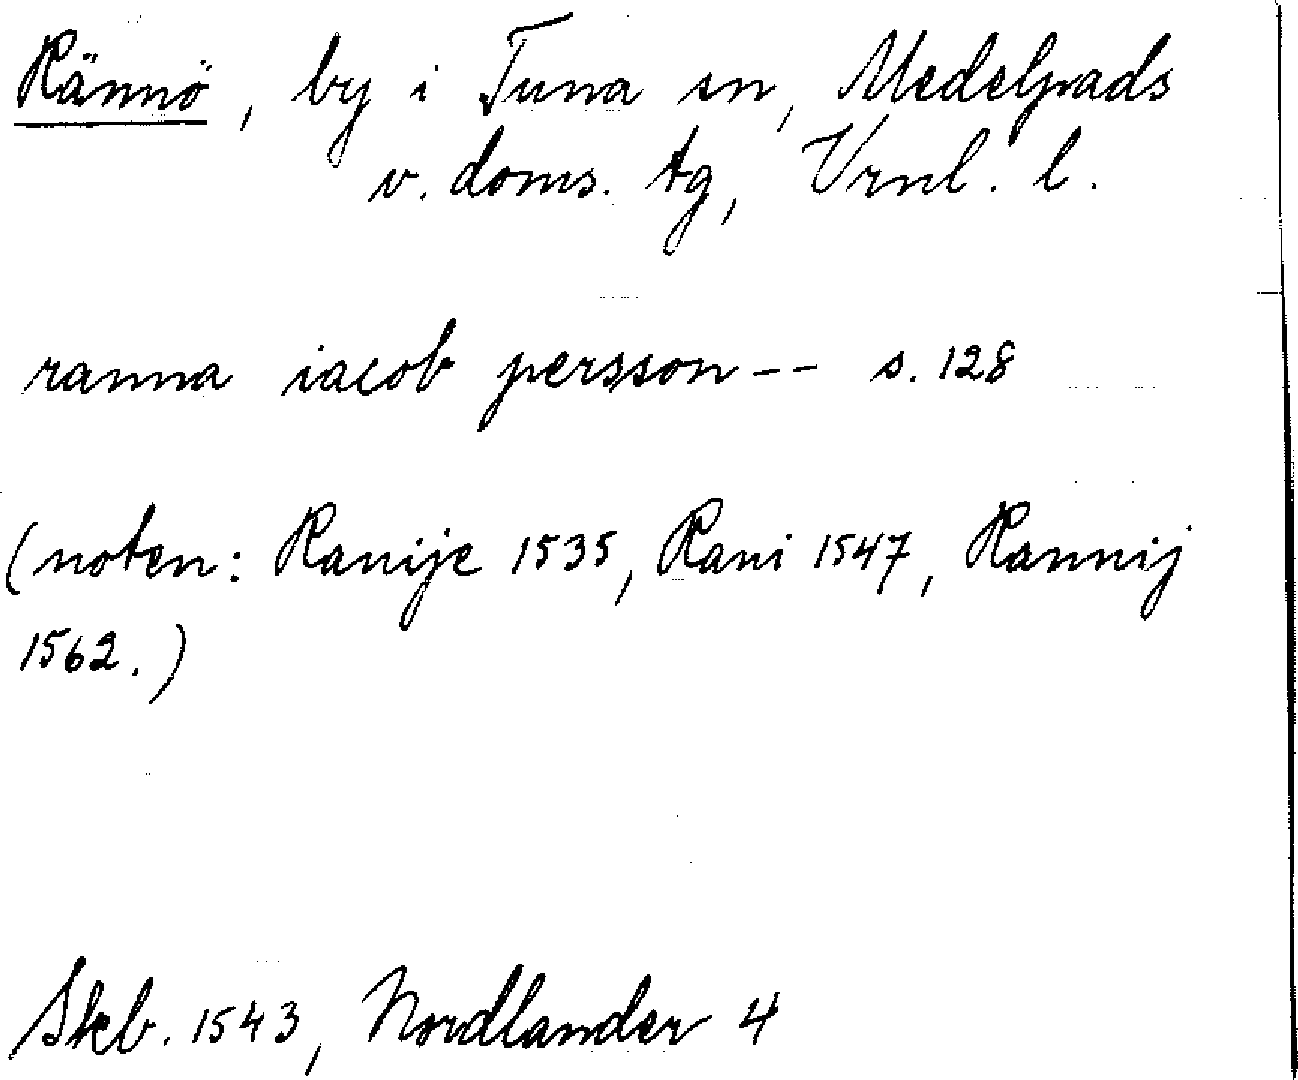 Rännö, by i Tuna sn, Medelpads
v. doms. tg, Vrnl. l.
ranna iacob persson-- s. 128
(noten: Ranije 1535, Rani 1547, Rannij
1562.)
Skb. 1543, Nordlander 4